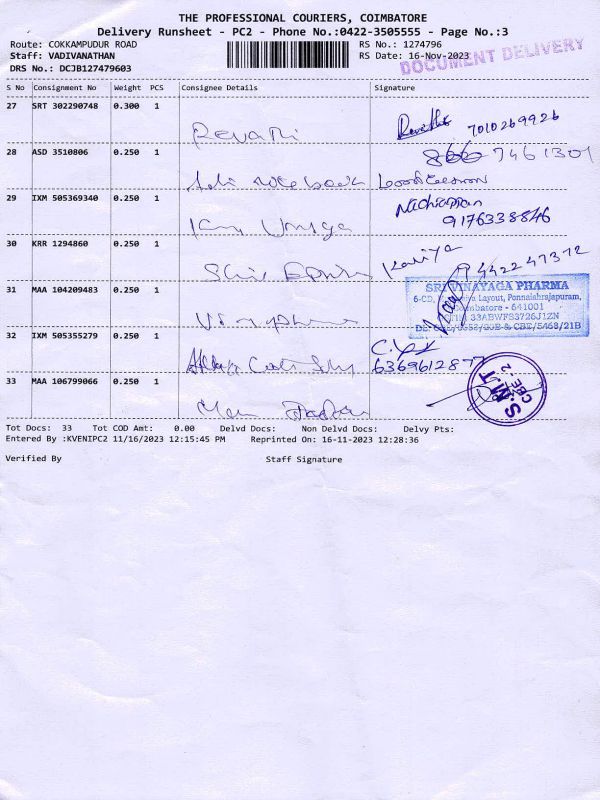 THE PROFESSIONAL COURIERS, COIMBATORE
Delivery Runsheet - PC2 - Phone No.:0422-3505555 - Page No.:3
Route: COKKAMPUDUR ROAD RS No.: 1274796
Staff: VADIVANATHAN RS Date: 16-Nov-2023
DOCUMENT DELIVERY
DRS No.: DCJB127479603
S No Consignment No Weight PCS Consignee Details Signature
27 SRT 302290748 0.300 1
Revathi Revathi 7010269926
28 ASD 3510806 0.250 1
7461301
29 IXM 505369340 0.250 1
Nachiappan
9176338846
30 KRR 1294860 0.250 1
Kaviya 9442247372
31 MAA 104209483 0.250 1
SRI VINAYAGA PHARMA
6-CD, Layout, Ponnaiahrajapuram,
Coimbatore - 641001
33ABWFS3726J1ZN
& CBE/5463/21B
32 IXM 505355279 0.250 1
6369612877
33 MAA 106799066 0.250 1
S.M.T
CBE-2
Tot Docs: 33 Tot COD Amt: 0.00 Delvd Docs: Non Delvd Docs: Delvy Pts:
Entered By :KVENIPC2 11/16/2023 12:15:45 PM Reprinted On: 16-11-2023 12:28:36
Verified By Staff Signature